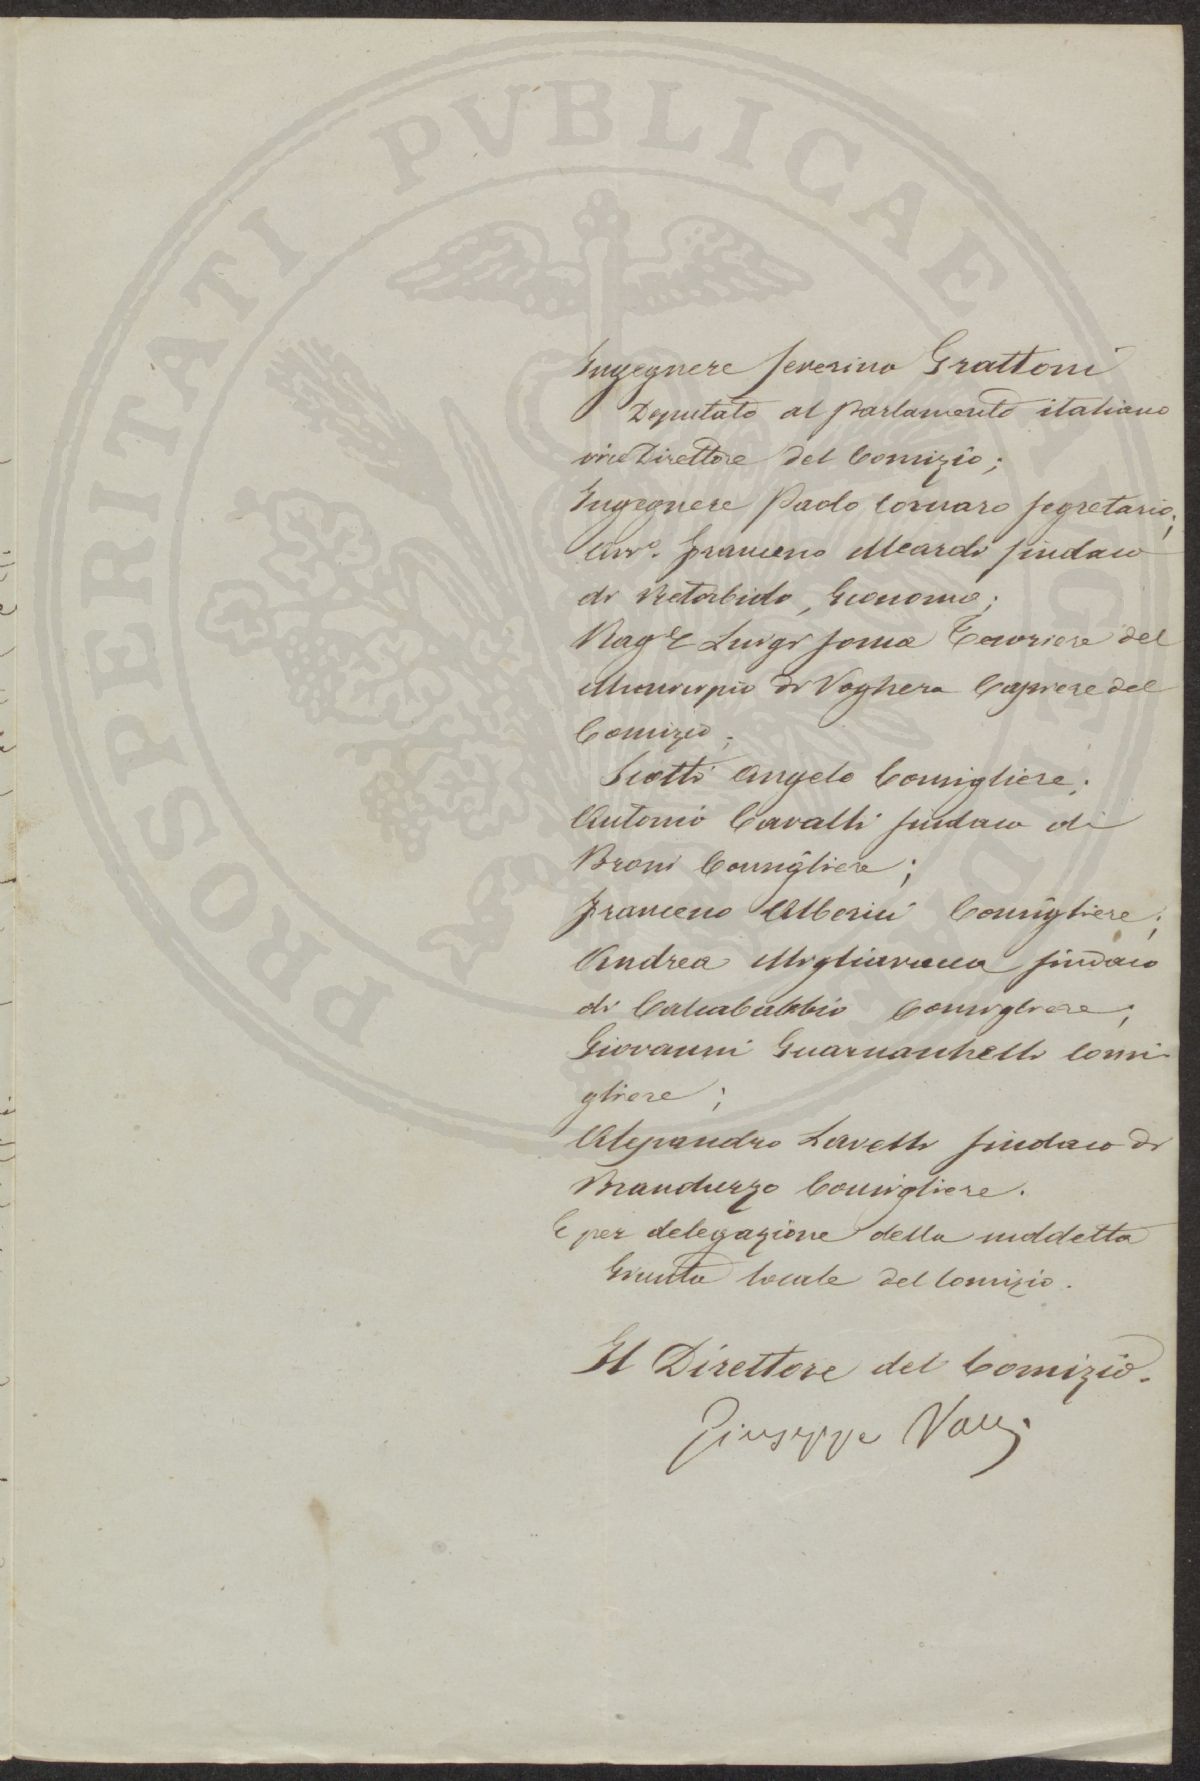 PROSPERITATI PVBLICAE
Ingegnere Severino Grattoni
Deputato al Parlamento italiano
vice Direttore del Comizio;
Ingegnere Paolo Cornaro Segretario;
Avv.º Francesco Meardi Sindaco
di Retorbido, Economo;
Rag.e Luigi Soma Tesoriere del
Municipio di Voghera Cassiere del
Comizio;
Scotti Angelo Consigliere;
Antonio Cavalli Sindaco di
Broni Consigliere;
Francesco Alberici Consigliere;
Andrea Migliavacca Sindaco
di Calcababbio Consigliere;
Giovanni Guarnaschelli Consi-
gliere;
Alessandro Lavelli Sindaco di
Branduzzo Consigliere.
E per delegazione della suddetta
Giunta locale del Comizio.
Il Direttore del Comizio.
Giuseppe